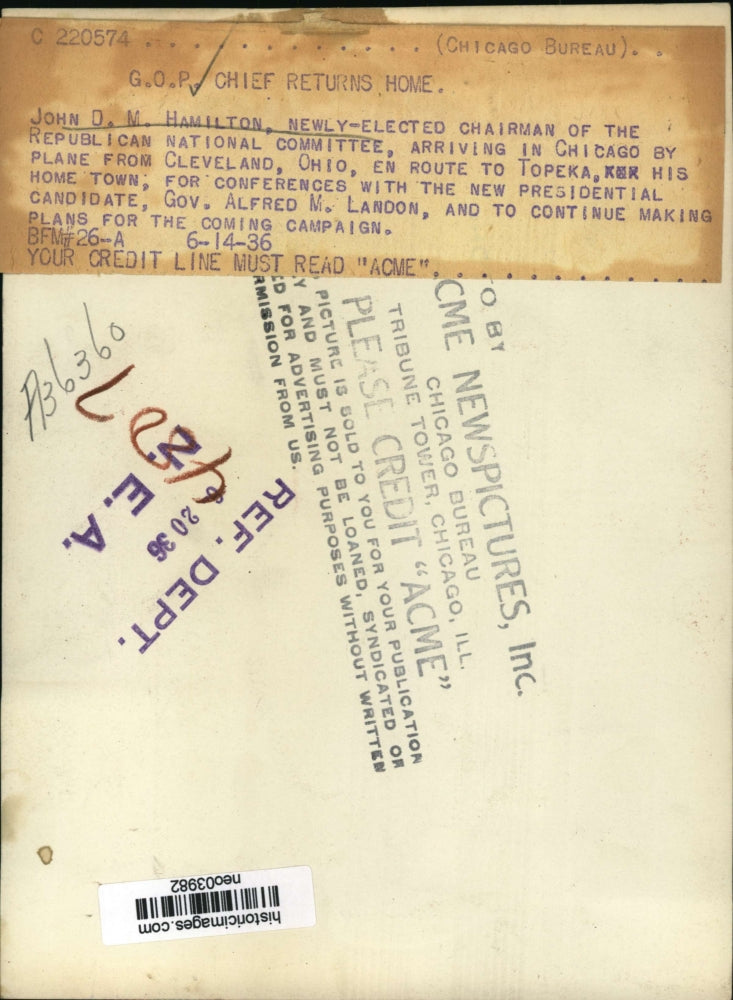 C 220574 . . . . . . . . . . . . . (CHICAGO BUREAU). .
G.O.P. CHIEF RETURNS HOME.
JOHN D. M. HAMILTON, NEWLY-ELECTED CHAIRMAN OF THE
REPUBLICAN NATIONAL COMMITTEE, ARRIVING IN CHICAGO BY
PLANE FROM CLEVELAND, OHIO, EN ROUTE TO TOPEKA, HIS
HOME TOWN, FOR CONFERENCES WITH THE NEW PRESIDENTIAL
CANDIDATE, GOV. ALFRED M. LANDON, AND TO CONTINUE MAKING
PLANS FOR THE COMING CAMPAIGN.
BFM#26-A 6-14-36
YOUR CREDIT LINE MUST READ "ACME". . . . . . . . . . .
O BY
CME NEWSPICTURES, Inc.
CHICAGO BUREAU
TRIBUNE TOWER, CHICAGO, ILL.
PLEASE CREDIT "ACME"
PICTURE IS SOLD TO YOU FOR YOUR PUBLICATION
Y AND MUST NOT BE LOANED, SYNDICATED OR
D FOR ADVERTISING PURPOSES WITHOUT WRITTEN
RMISSION FROM US.
A36360
REF. DEPT.
20 36
N. E. A.
historicimages.com
neo03982